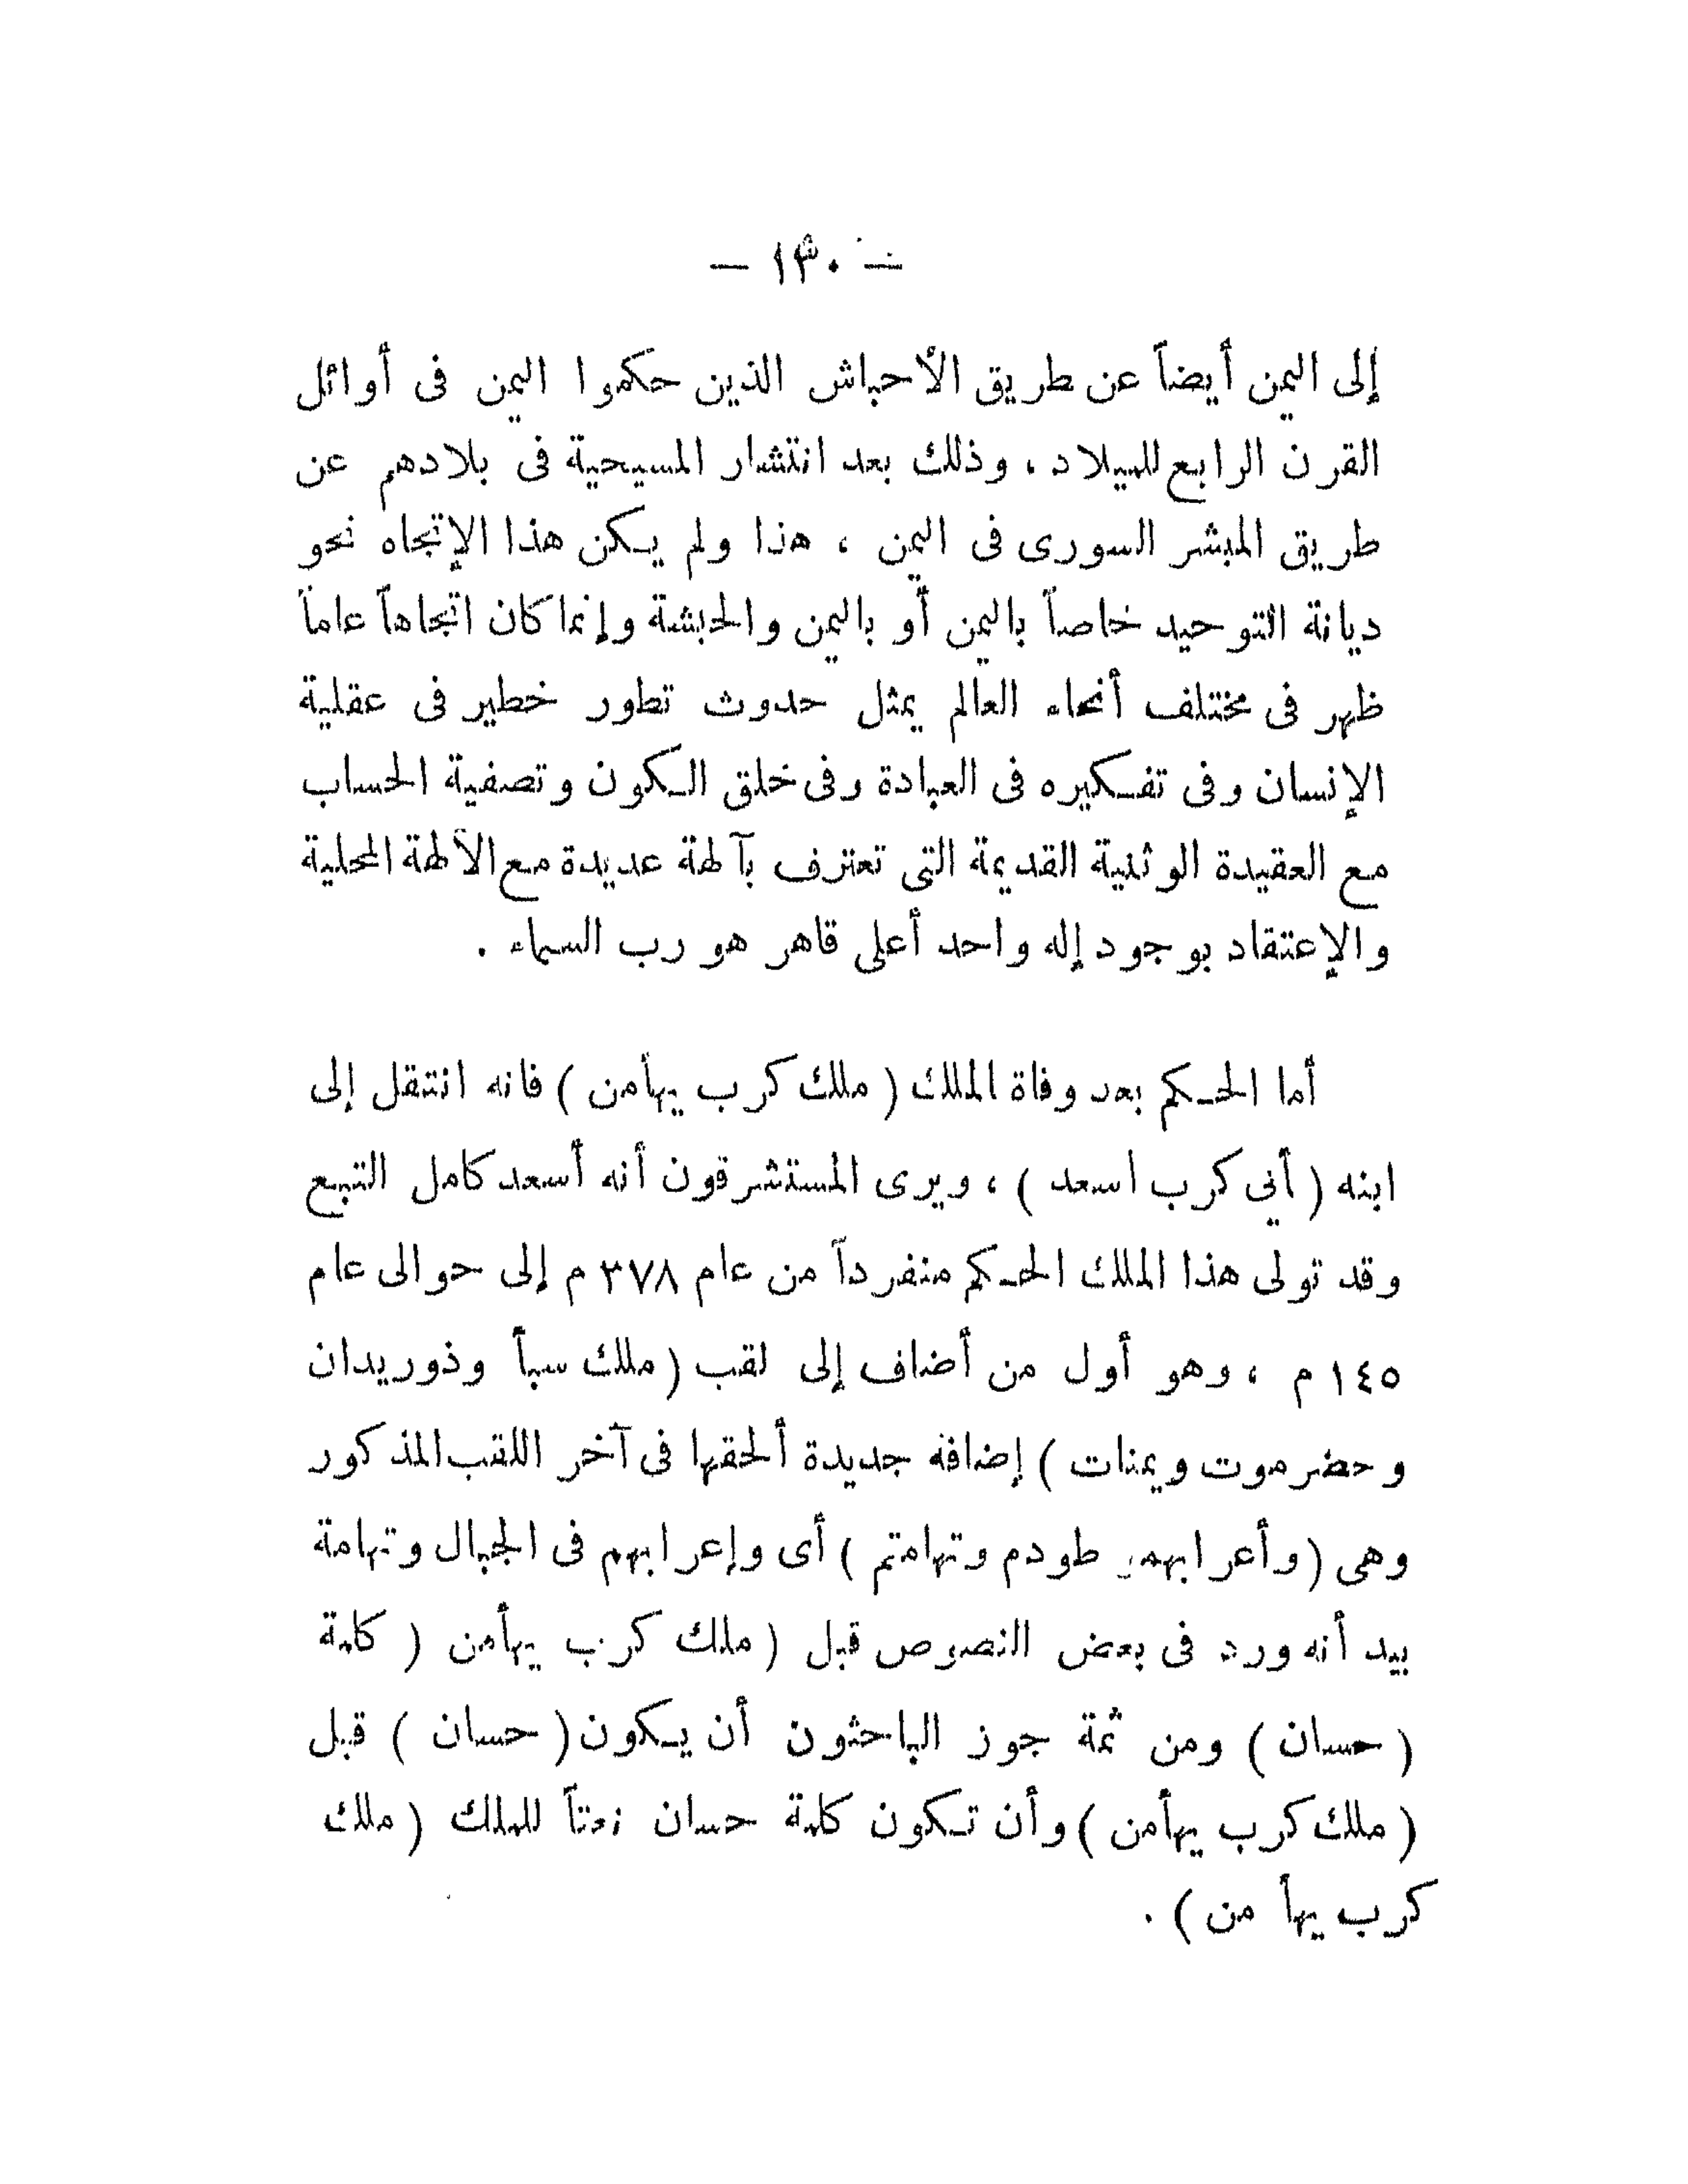 — ١٣٠ —
إلى اليمن أيضاً عن طريق الأحباش الذين حكموا اليمن فى أوائل
القرن الرابع للميلاد ، وذلك بعد انتشار المسيحية فى بلادهم عن
طريق المبشر السورى فى اليمن ، هذا ولم يكن هذا الإتجاه نحو
ديانة التوحيد خاصاً باليمن أو باليمن والحبشة وإنما كان اتجاهاً عاماً
ظهر فى مختلف أنحاء العالم يمثل حدوث تطور خطير فى عقلية
الإنسان وفى تفكيره فى العبادة وفى خلق الكون وتصفية الحساب
مع العقيدة الوثنية القديمة التى تعترف بآلهة عديدة مع الآلهة المحلية
والإعتقاد بوجود إله واحد أعلى قاهر هو رب السماء .
أما الحكم بعد وفاة الملك ( ملك كرب يهأمن ) فانه انتقل إلى
ابنه ( أبي كرب اسعد ) ، ويرى المستشرقون أنه أسعد كامل التبع
وقد تولى هذا الملك الحكم منفرداً من عام ٣٧٨ م إلى حوالى عام
١٤٥ م ، وهو أول من أضاف إلى لقب ( ملك سبأ وذوريدان
وحضرموت ويمنات ) إضافة جديدة ألحقها فى آخر اللقب المذكور
وهى ( وأعرابهمو طودم وتهامتم ) أى وإعرابهم فى الجبال وتهامة
بيد أنه ورد فى بعض النصوص قبل ( ملك كرب يهأمن ( كلمة
( حسان ) ومن ثمة جوز الباحثون أن يكون ( حسان ) قبل
( ملك كرب يهأمن ) وأن تكون كلمة حسان نعتاً للملك ( ملك
كرب يهأ من ) .